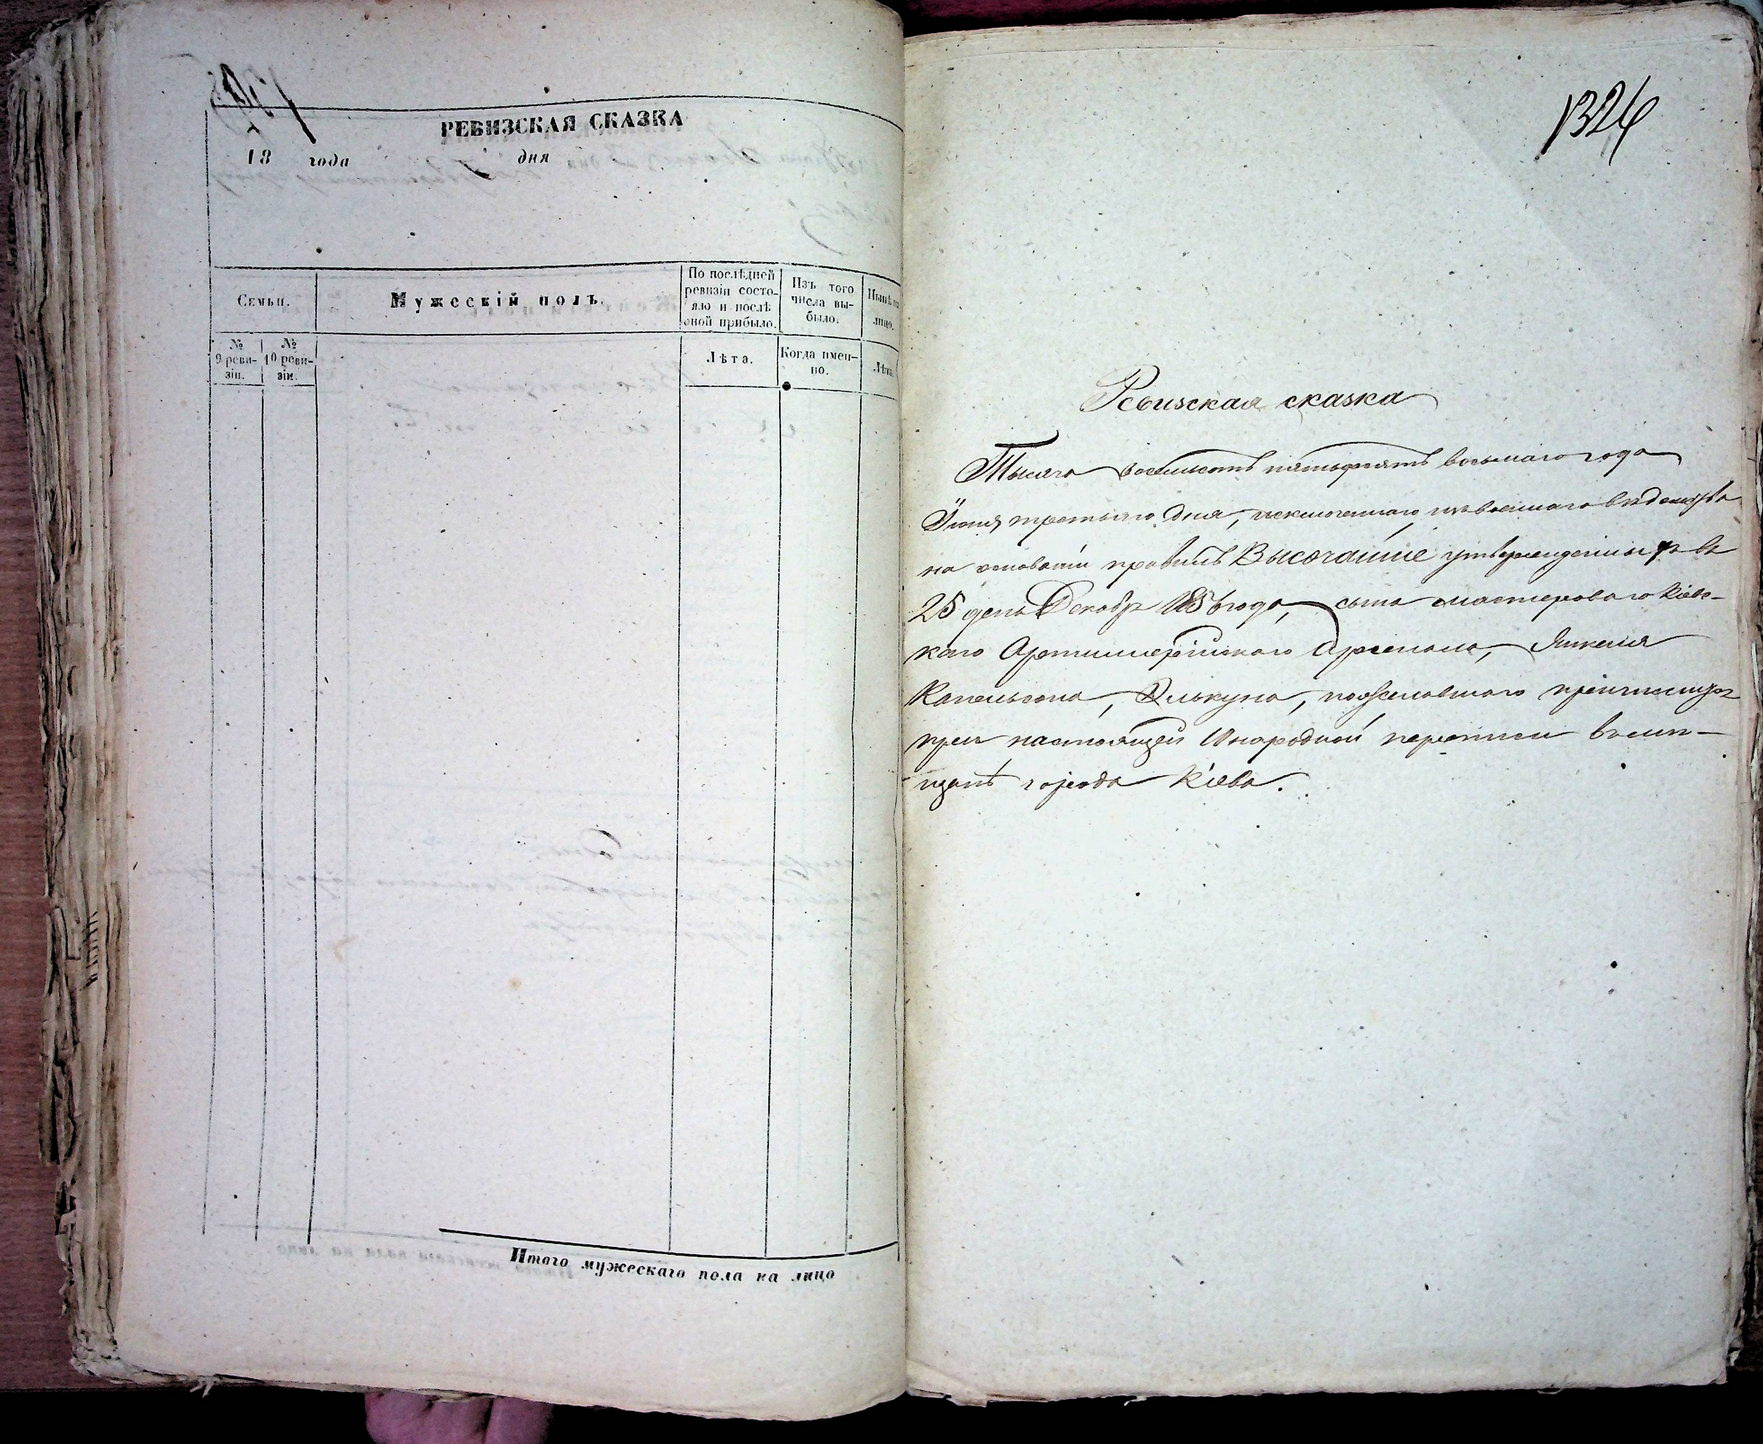 РЕВИЗСКАЯ СКАЗКА
18 года дня
Семьи.
Мужескій полъ.
По послѣдней ревизіи состояло и послѣ оной прибыло.
Изъ того числа выбыло.
Нынѣ на лицо.
№ 9 ревизіи.
№ 10 ревизіи.
Лѣта.
Когда именно.
Лѣта.
Итого мужескаго пола на лицо
1326
Ревизская сказка
Тысяча восемьсотъ пятьдесятъ восьмаго года
Іюня третьяго дня, исключеннаго изъ военнаго вѣдомства
на основаніи правилъ Высочайше утвержденныхъ въ
25 день Декабр 1856 года, сына мастероваго Кіевс-
каго Артиллерійскаго Арсенала, Янкеля
Капельсона, Элькуна, пожелавшаго
при настоящей 10 народной переписи въ мѣ-
щанѣ города Кіева.